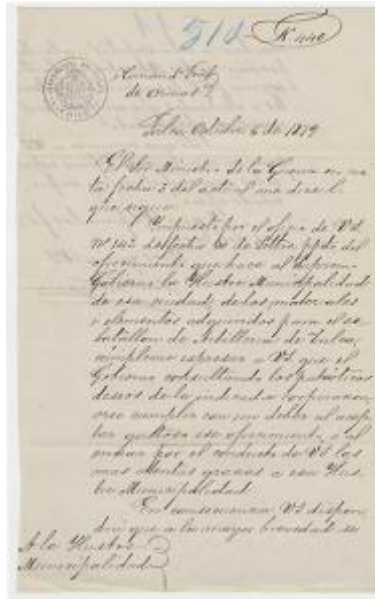 510 N 440
Comand.ª Jral
de armas
Talca Octubre 6 de 1879
El Sr Ministro de la Guerra en no
ta fecha 3 del actual me dice lo
que sigue:
"Impuesto por el oficio de VS.
Nº 142 de fecha de Setbre. ppdo del
ofrecimiento que hace al Supremo
Gobierno la Ilustre Municipalidad
de esa ciudad, de los materiales
i elementos adquiridos para el
batallon de Artilleria de Talca,
cúmpleme espresar a VS. que el
Gobierno consultando los patrióticos
deseos de la indicada corporacion,
cree cumplir con un deber al acep
tar gustoso ese ofrecimiento, i al
enviar por el conducto de VS las
mas atentas gracias a esa Ilus
tre Municipalidad.
En consecuencia VS dispon
drá que a la mayor brevedad se
A la Ilustre
Municipalidad